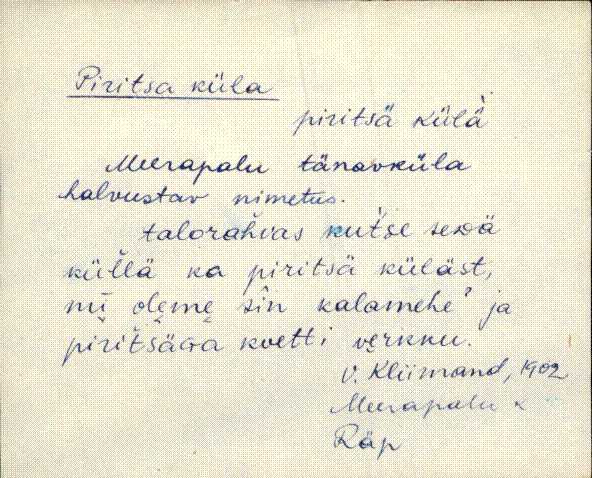 Piritsa küla
piritsä külä
Meerapalu tänavküla
halvustav nimetus.
talorahvas kut́se sedä
küĺlä ka piritsä küläst,
mī oleme sīn kalamehe' ja
piritsäga kvetti verkku.
V. Kliimand, 1902
Meerapalu k
Räp